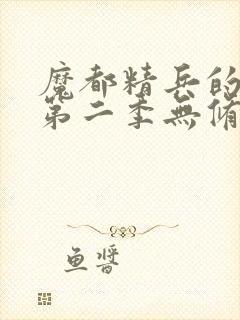 魔都精兵的
第二季無脩
鱼醬